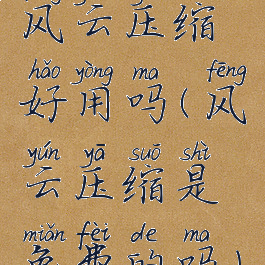 风云压缩
hǎo yòng ma fēng
好用吗(风
yún yā suō shì
云压缩是
miǎn fèi de ma
免费的吗)